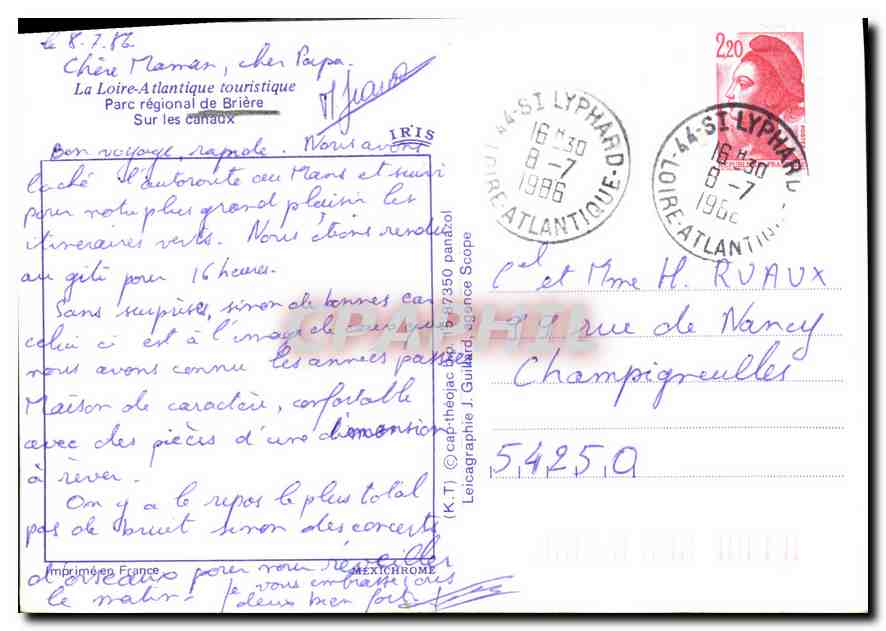 le 8.7.86
Chère Maman, cher Papa.
La Loire-Atlantique touristique
Parc régional de Brière
Sur les canaux
IRIS
Bon voyage, rapide. Nous avons
laché l'autoroute au Mans et suivi
pour notre plus grand plaisir les
itineraires verts. Nous étions rendus
au gîte pour 16 heures.
Sans surprises, sinon de bonnes car
celui ci est à l'image de ceux que
nous avons connu les années passées
Maison de caractère, confortable
avec des pièces d'une dimension
à rêver.
On y a le repos le plus total
pas de bruit sinon des concerts
d'oiseaux pour nous réveiller
le matin. Je vous embrasse tous
deux bien fort.
Imprimé en France
MEXICHROME
(K.T) © cap-théojac b.p. 15 87350 panazol
Leicagraphie J. Guillard, agence Scope
CPAPHIL
2,20
44-ST LYPHARD
16H30
8-7
1986
LOIRE-ATLANTIQUE
44-ST LYPHARD
16H30
8-7
1986
LOIRE-ATLANTIQUE
Cel et Mme H. RUAUX
99 rue de Nancy
Champigneulles
54250